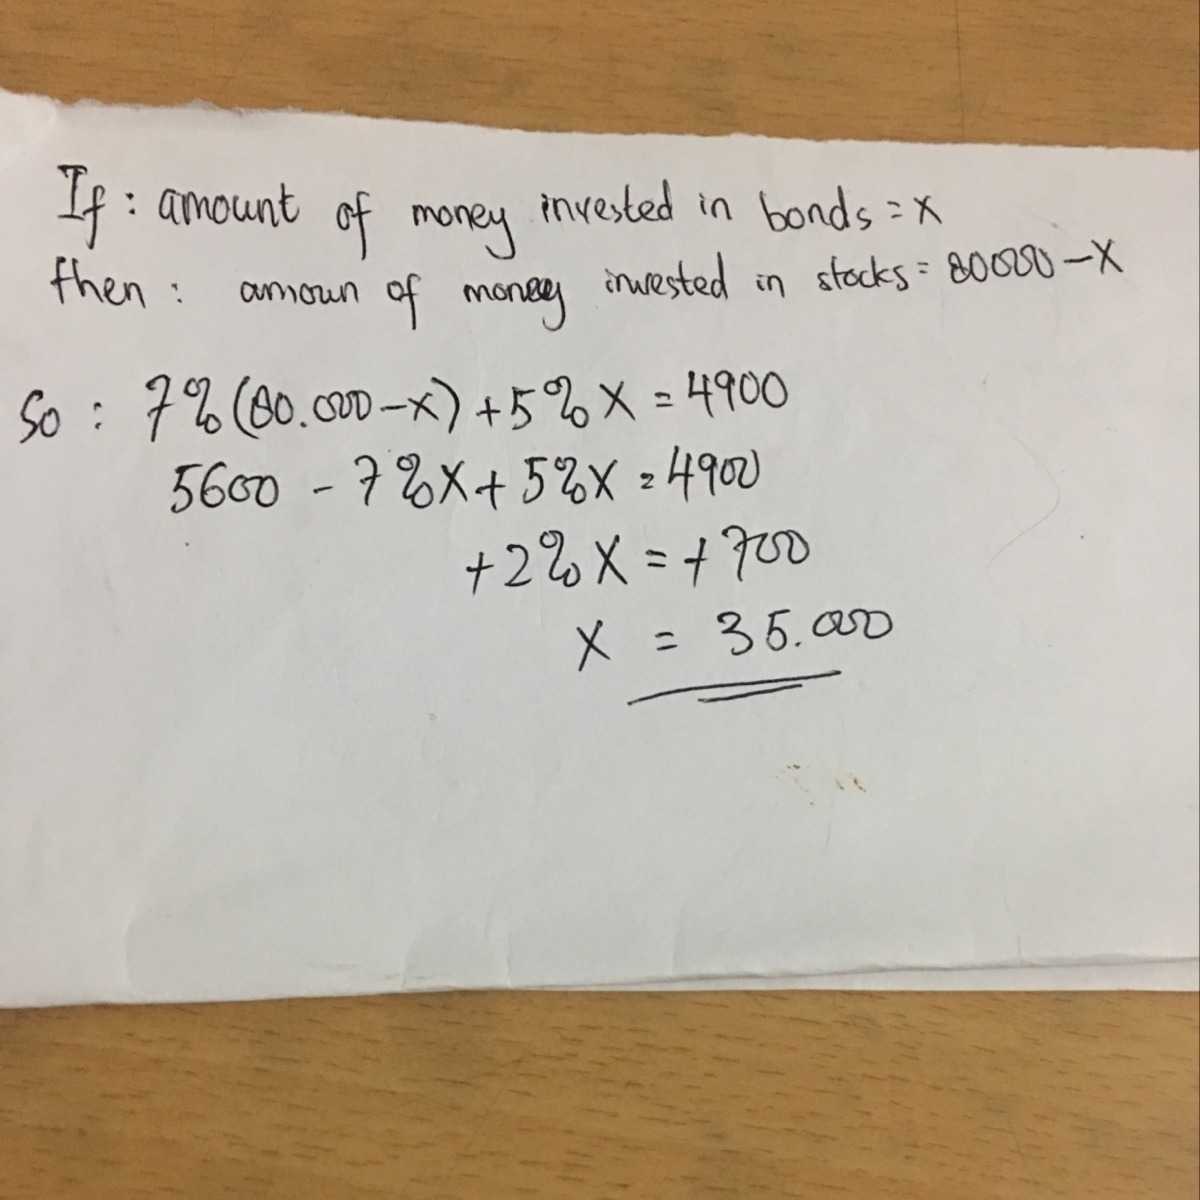 If : amount of money invested in bonds = x
then : amoun of money invested in stocks = 80000 - x
So : 7% (80.000 - x) + 5% x = 4900
5600 - 7% x + 5% x = 4900
+ 2% x = + 700
x = 35.000